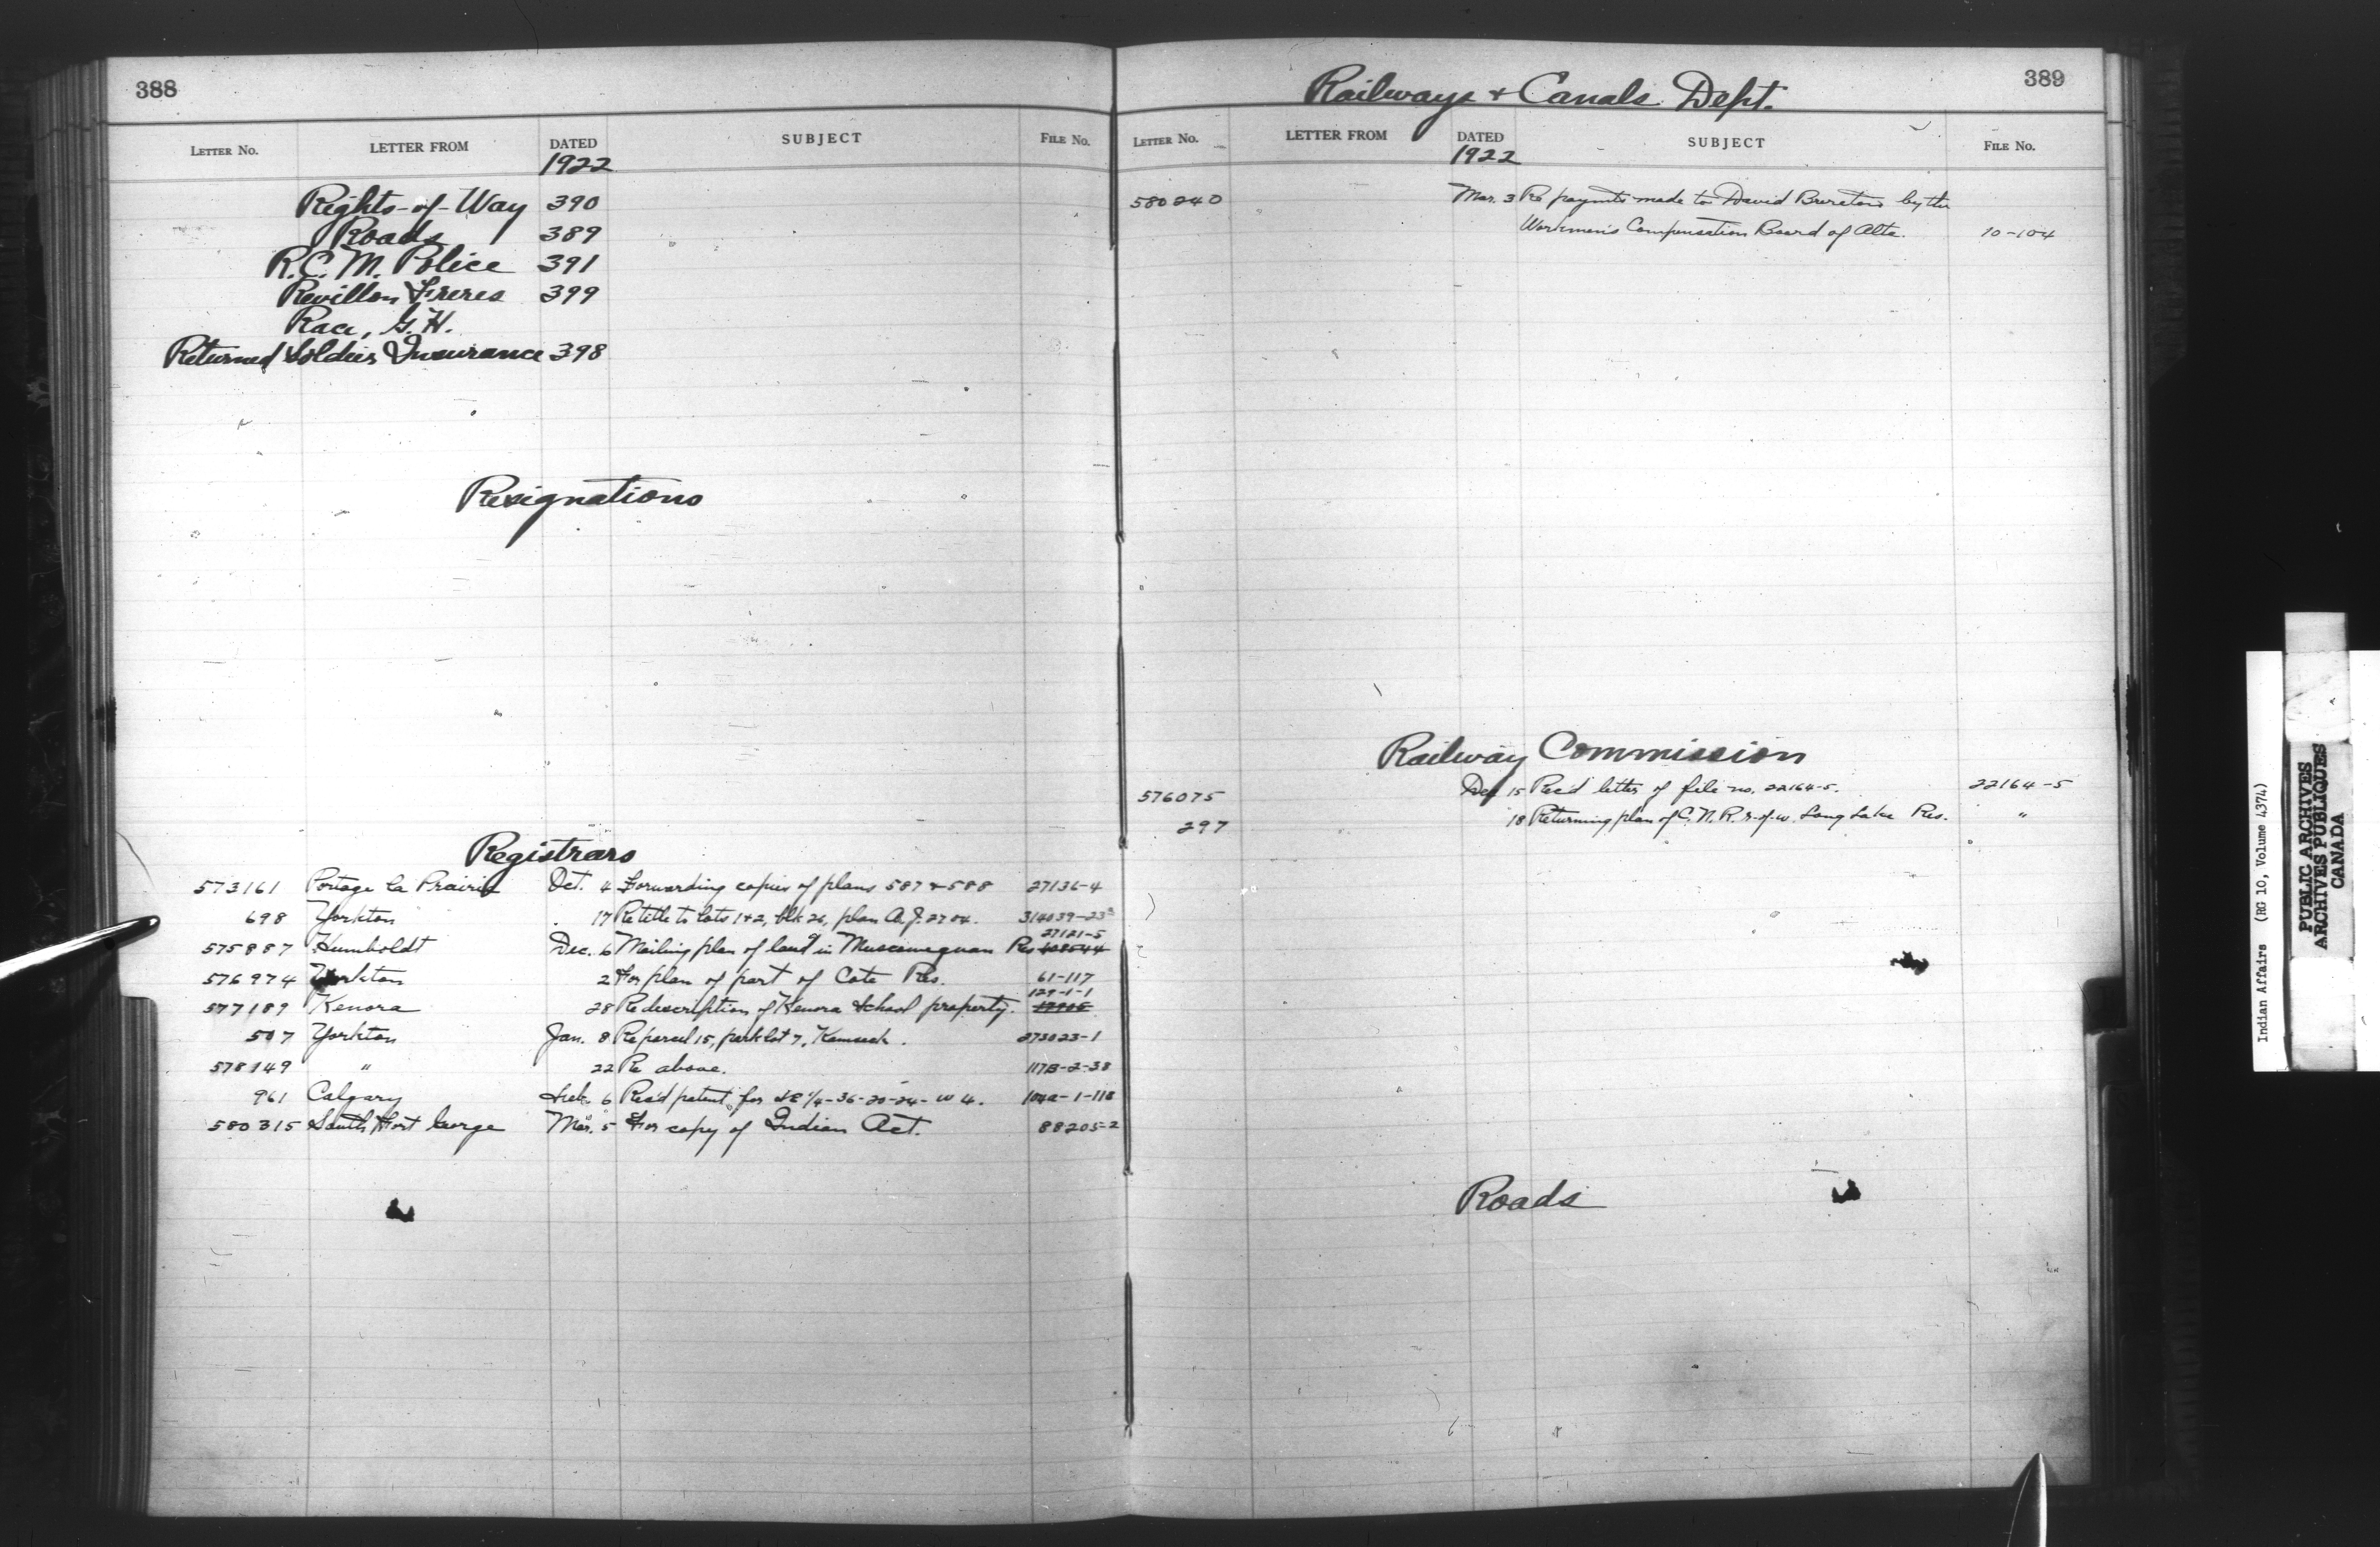 388
LETTER NO. LETTER FROM DATED SUBJECT FILE No.
1922
Rights-of-Way 390
Roads 389
R.C.M. Police 391
Revillon Freres 399
Race, G.H.
Returned Soldiers Insurance 398
Resignations
Registrars
573161 Portage la Prairie Oct. 4 Forwarding copies of plans 587 & 588 27136-4
698 Yorkton 17 Re title to lots 1+2, blk 26, plan A.J. 2704. 314039-23
27121-5
575887 Humboldt Dec. 6 Mailing plan of land in Muscowequan Res
576974 Yorkton 2 For plan of part of Cote Res. 61-117
129-1-1
577189 Kenora 28 Re description of Kenora School property.
507 Yorkton Jan. 8 Re parcel 15, park lot 7, Kamsack. 273023-1
578149 " 22 Re above. 117B-2-38
961 Calgary Feb. 6 Rec'd patent for SE 1/4-36-20-24-W 4.
580315 South Fort George Mar. 5 For copy of Indian Act. 88205-2
Railways & Canals Dept.
389
LETTER NO. LETTER FROM DATED SUBJECT FILE No.
1922
580240 Mar. 3 Re paymts made to David Brereton by the
Workmen's Compensation Board of Alta. 10-104
Railway Commission
576075 Dec 15 Rec'd letter of file no. 22164-5. 22164-5
297 18 Returning plan of C.N.R. r-of-w. Long Lake Res. "
Roads
Indian Affairs (RG 10, Volume 4374)
PUBLIC ARCHIVES
ARCHIVES PUBLIQUES
CANADA